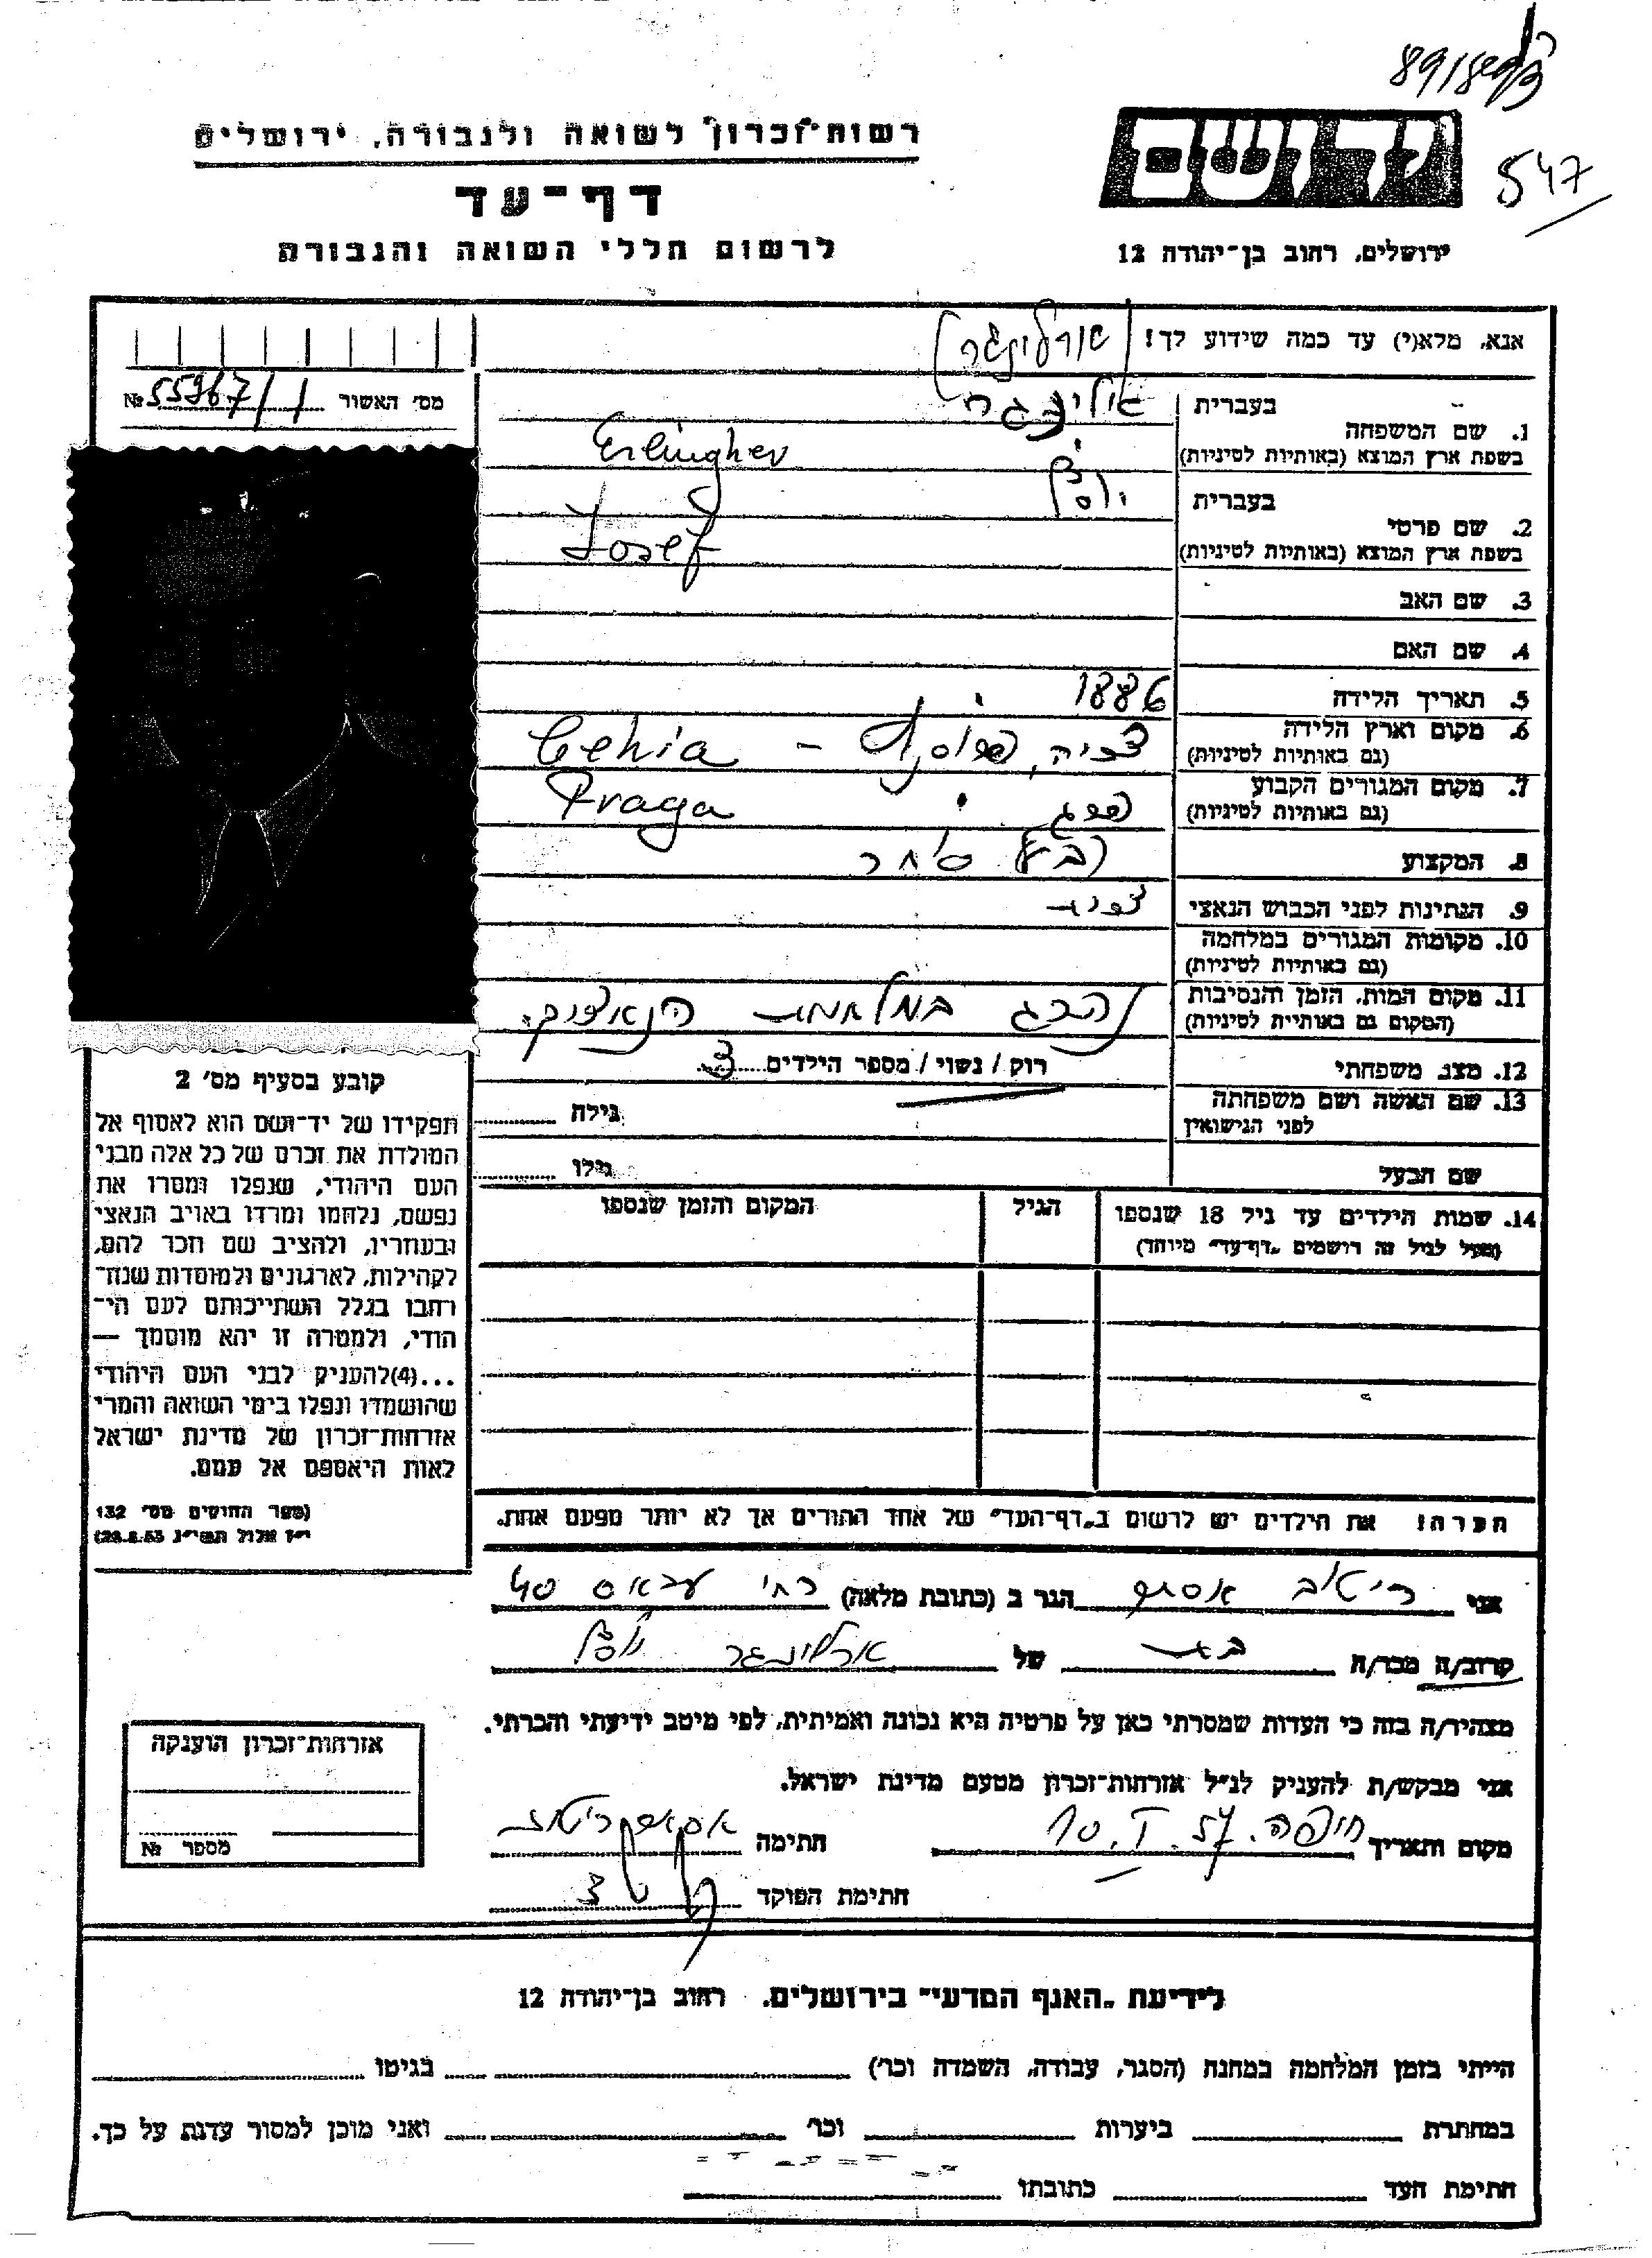 89/18
547
רשות־זכרון לשואה ולגבורה, ירושלים
דף־עד
לרשום חללי השואה והגבורה
ידושם
ירושלים, רחוב בן־יהודה 12
אנא, מלא(י) עד כמה שידוע לך!
מס׳ האשור № 55967/1
1. שם המשפחה
בעברית
בשפת ארץ המוצא (באותיות לטיניות) Erlingher
2. שם פרטי
בעברית יוסף
בשפת ארץ המוצא (באותיות לטיניות) Josef
3. שם האב
4. שם האם
5. תאריך הלידה 1886
6. מקום וארץ הלידה צכיה, Cehia -
(גם באותיות לטיניות)
7. מקום המגורים הקבוע פרג Praga
(גם באותיות לטיניות)
8. המקצוע סוחר
9. הנתינות לפני הכבוש הנאצי צכית
10. מקומות המגורים במלחמה
(גם באותיות לטיניות)
11. מקום המות, הזמן והנסיבות נהרג במלחמת הנאצים.
(המקום גם באותיות לטיניות)
12. מצב משפחתי רוק / נשוי / מספר הילדים
13. שם האשה ושם משפחתה
לפני הנישואין
גילה
שם הבעל
גילו
14. שמות הילדים עד גיל 18 שנספו
(מעל לגיל זה רושמים „דף־עד״ מיוחד)
הגיל
המקום והזמן שנספו
קובע בסעיף מס׳ 2
תפקידו של יד־ושם הוא לאסוף אל
המולדת את זכרם של כל אלה מבני
העם היהודי, שנפלו ומסרו את
נפשם, נלחמו ומרדו באויב הנאצי
ובעוזריו, ולהציב שם וזכר להם,
לקהילות, לארגונים ולמוסדות שנח־
רבו בגלל השתייכותם לעם הי־
הודי, ולמטרה זו יהא מוסמך —
...(4)להעניק לבני העם היהודי
שהושמדו ונפלו בימי השואה והמרי
אזרחות־זכרון של מדינת ישראל
לאות היאספם אל עמם.
(ספר החוקים מס׳ 132
י״ז אלול תשי״ג 28.8.53)
הערה! את הילדים יש לרשום ב„דף־העד״ של אחד ההורים אך לא יותר מפעם אחת.
אני ריטוב אסתר הגר ב (כתובת מלאה) רחי עבאס 40
קרוב/ה מכר/ה בת של ארלינגר יוסף
מצהיר/ה בזה כי העדות שמסרתי כאן על פרטיה היא נכונה ואמיתית, לפי מיטב ידיעתי והכרתי.
אני מבקש/ת להעניק לנ״ל אזרחות־זכרון מטעם מדינת ישראל.
מקום ותאריך חיפה. 10. I. 57 חתימה
חתימת הפוקד
אזרחות־זכרון הוענקה
מספר №
לידיעת „האגף המדעי״ בירושלים, רחוב בן־יהודה 12
הייתי בזמן המלחמה במחנה (הסגר, עבודה, השמדה וכו׳) בגיטו
במחתרת ביערות וכו׳ ואני מוכן למסור עדות על כך.
חתימת העד כתובתו